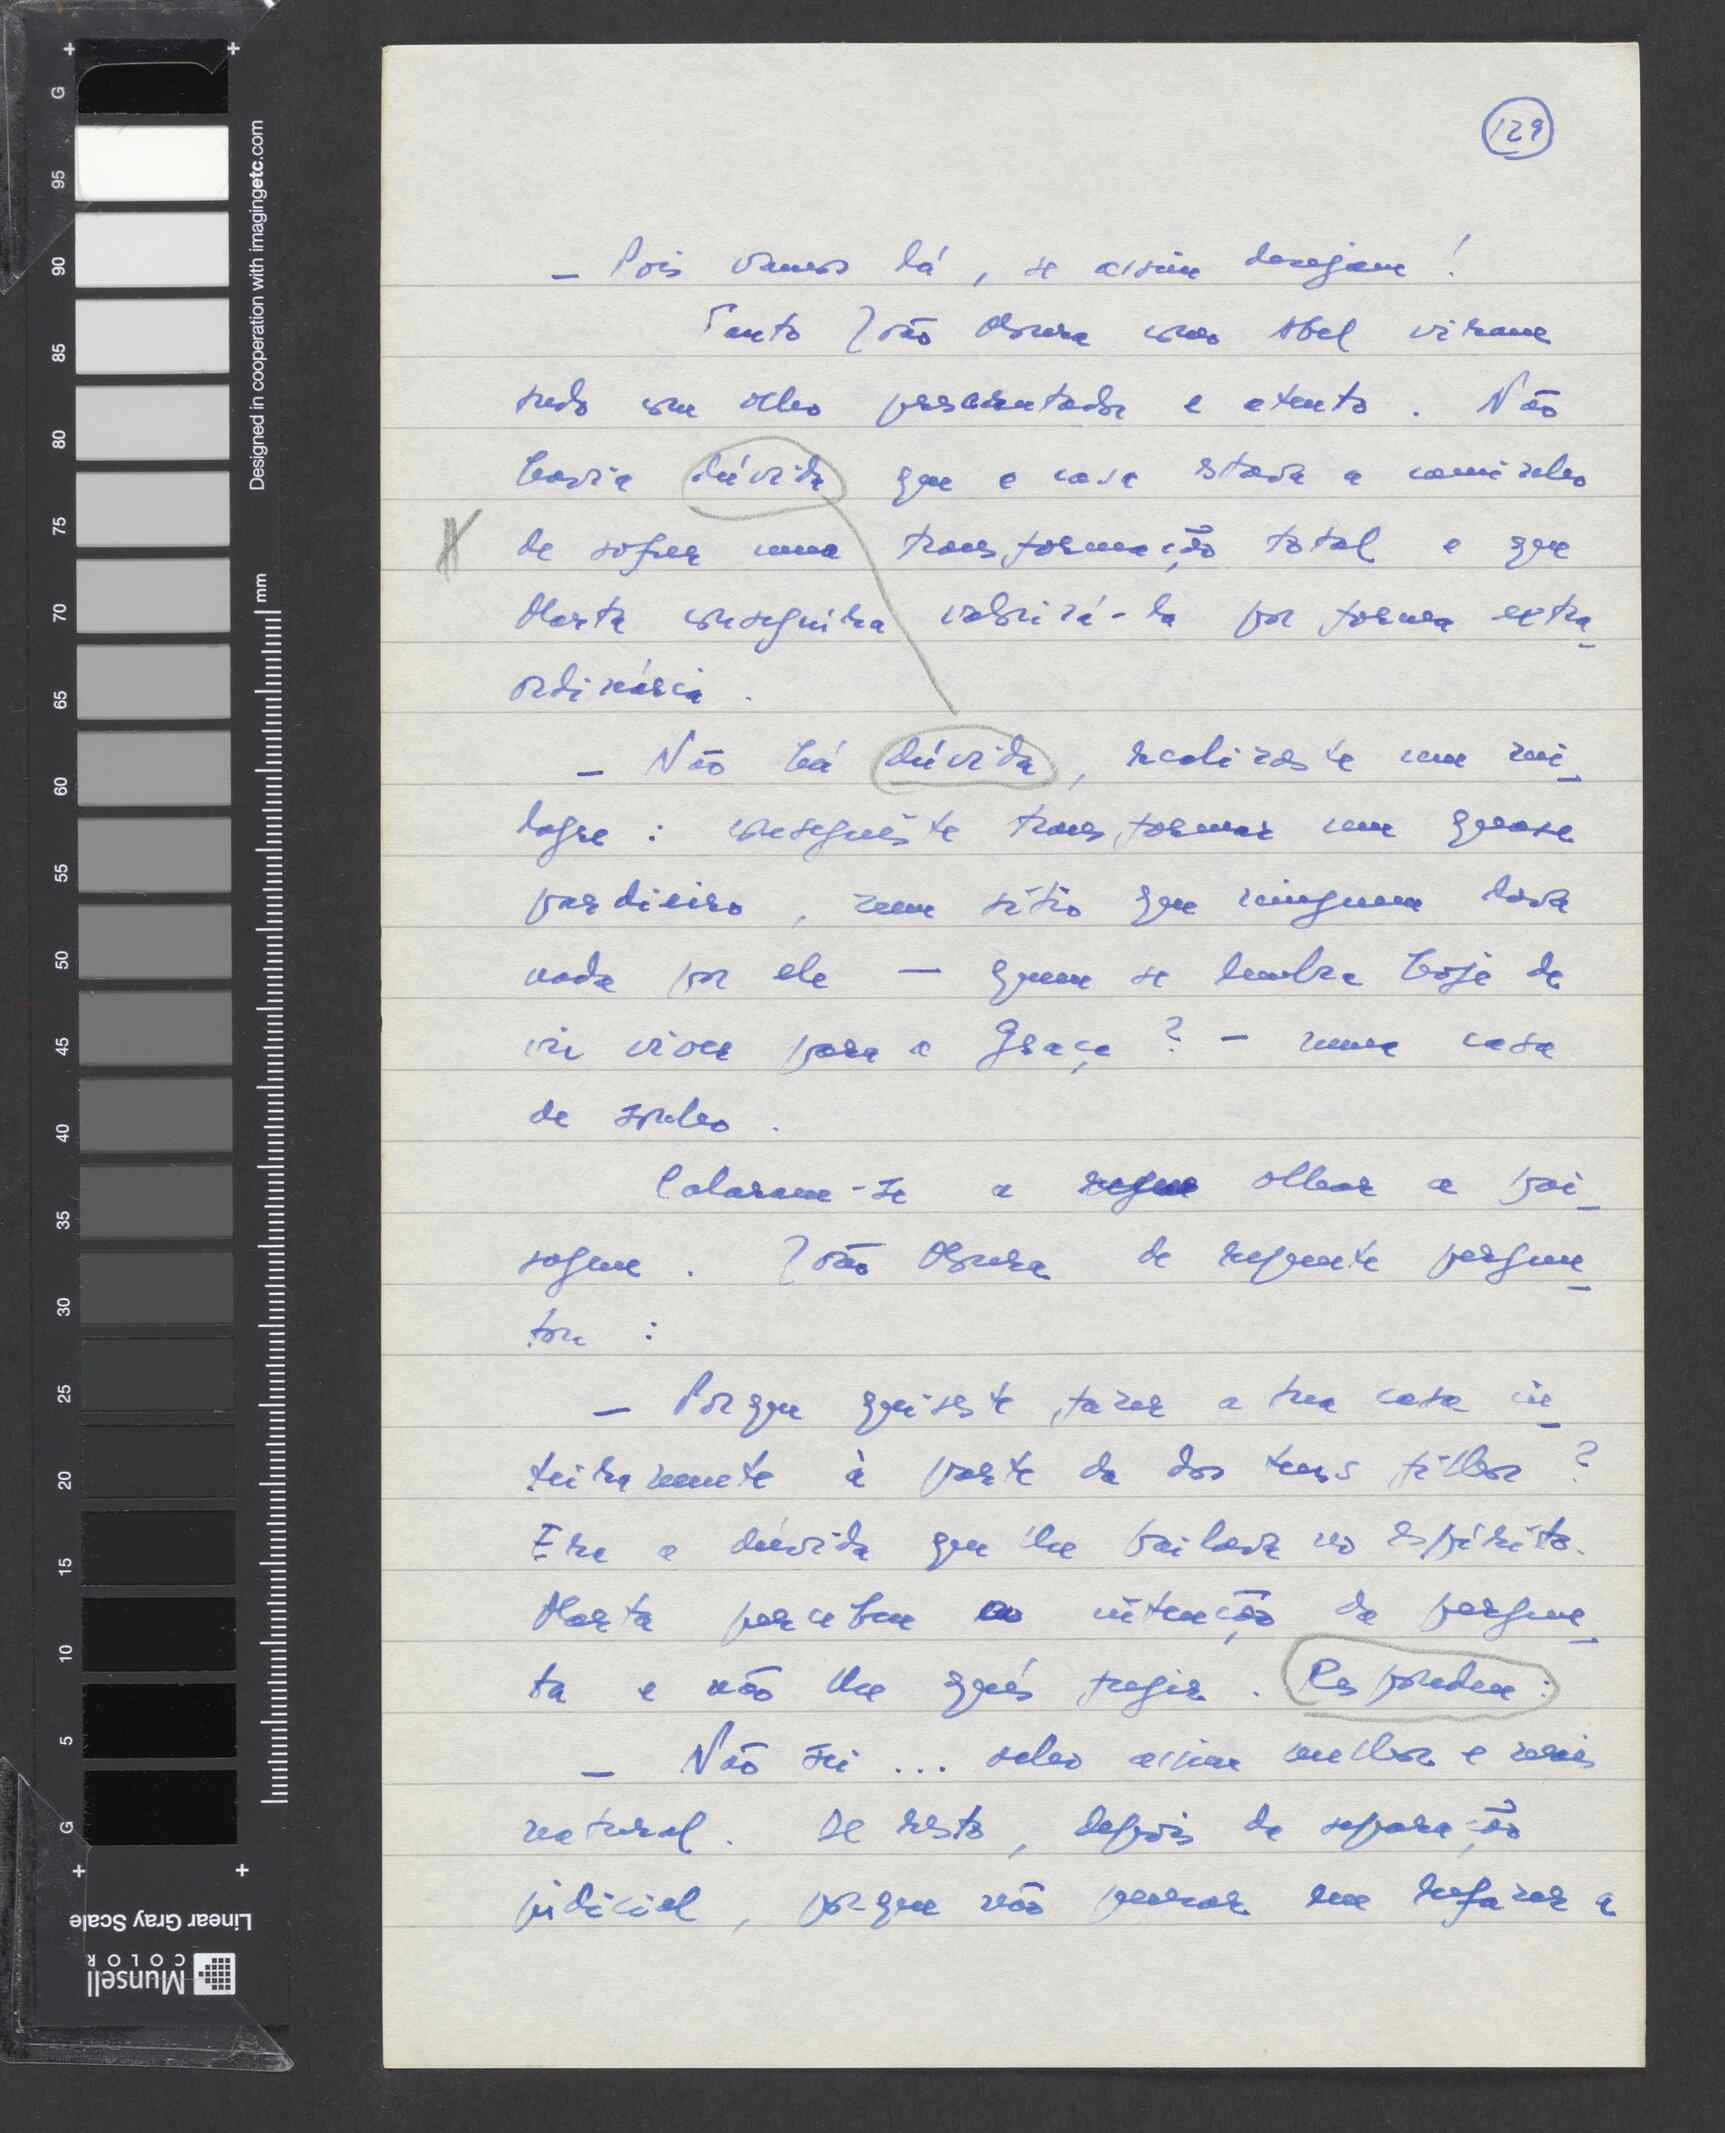 129
– Pois vamos lá, se assim desejam!
Tanto João Moura como Abel viram
tudo com olho perscrutador e atento. Não
havia dúvida que a casa estava a caminho
de sofrer uma transformação total e que
Marta conseguira valorizá-la por forma extra
ordinária.
– Não há dúvida, realizaste um mi
lagre: conseguiste transformar um quase
pardieiro, num sítio que ninguem dava
nada por ele — quem se lembra hoje de
vir viver para a Graça? – numa casa
de sonho.
Calaram-se a olhar a pai
sagem. João Moura de repente pergun
tou:
– Porque quiseste fazer a tua casa in
teiramente à parte da dos teus filhos?
Era a dúvida que lhe bailava no espírito.
Marta percebeu a intenção da pergun
ta e não lhe quis fugir. Respondeu:
– Não sei... acho assim melhor e mais
natural. De resto, depois da separação
judicial, porque não pensar em refazer a
G
95
90
85
80
75
70
65
60
55
50
45
40
35
30
25
20
15
10
5
G
mm
Designed in cooperation with imagingetc.com
Linear Gray Scale
Munsell
COLOR